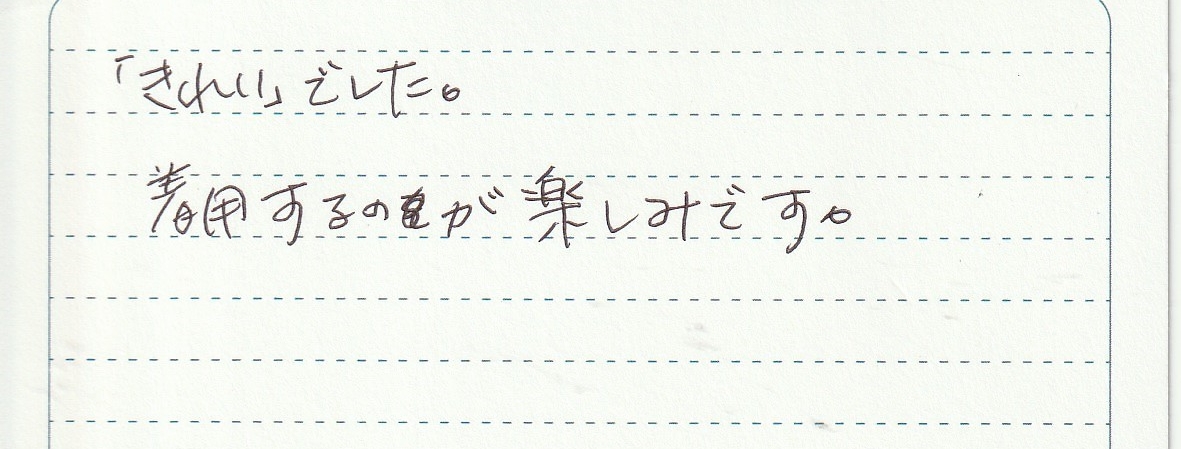 「きれい」でした。
着用するのが楽しみです。